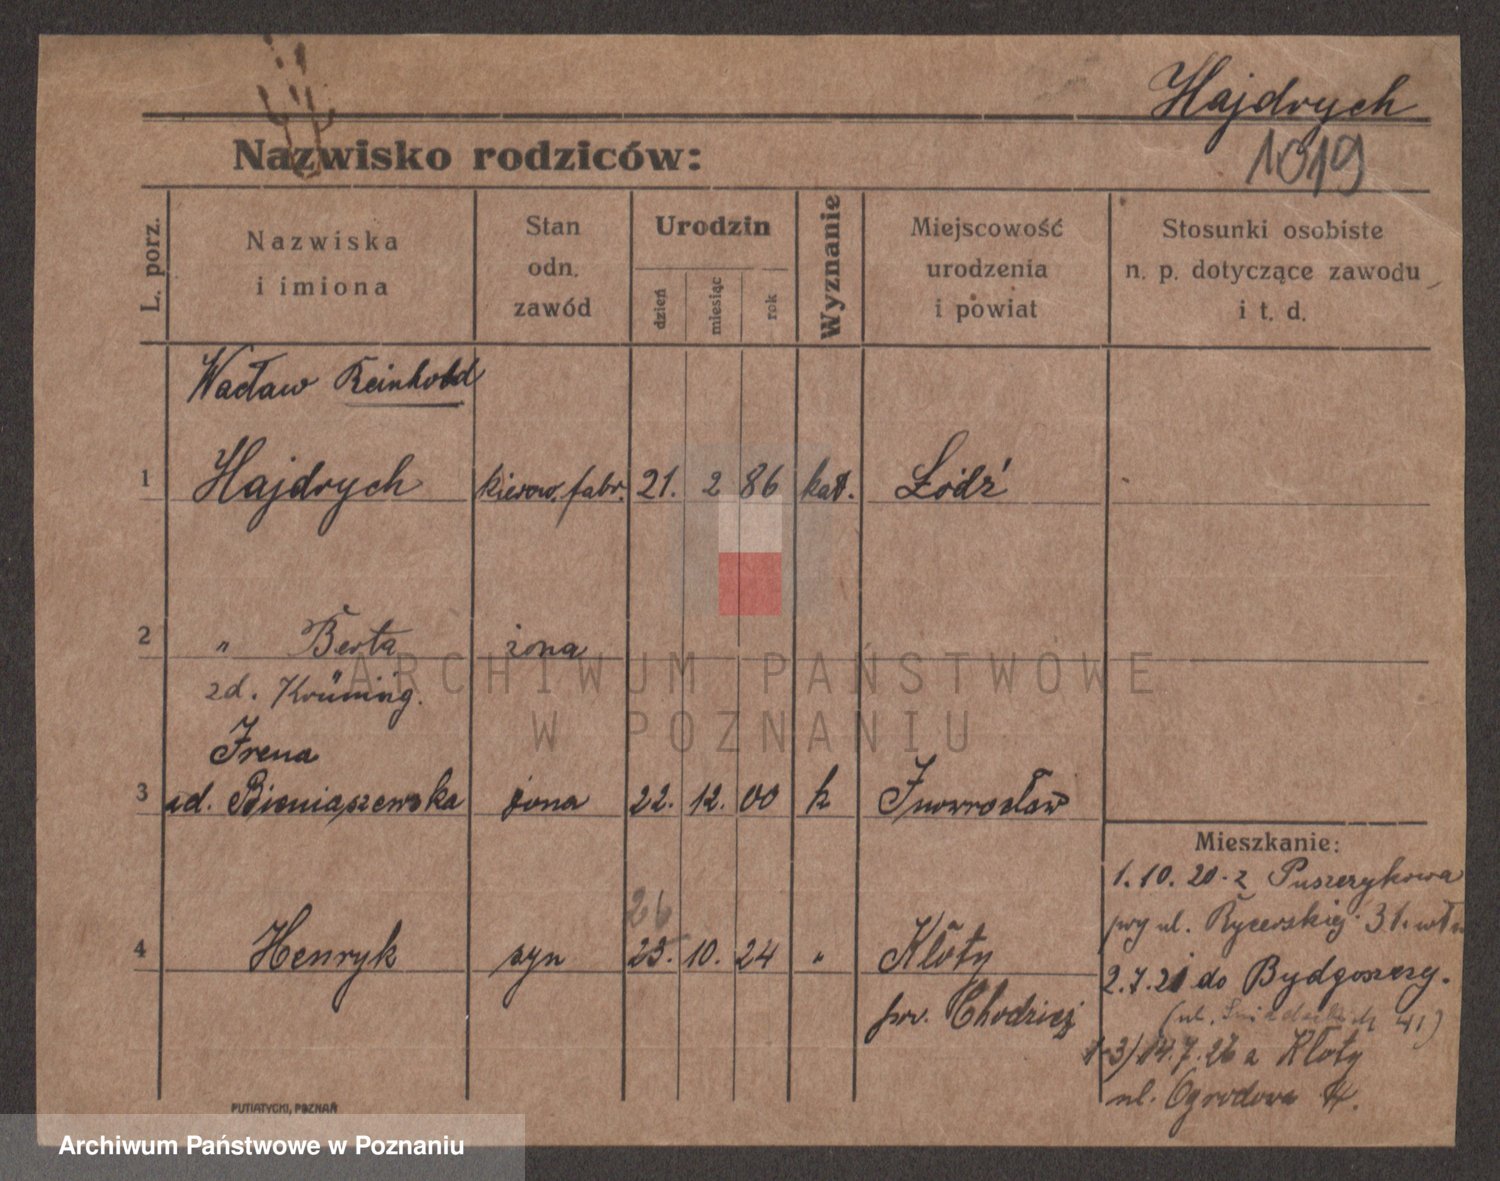 Hajdrych
1019
Nazwisko rodziców:
L. porz.
Nazwiska
i imiona
Stan
odn.
zawód
Urodzin
dzień
miesiąc
rok
Wyznanie
Miejscowość
urodzenia
i powiat
Stosunki osobiste
n. p. dotyczące zawodu
i t. d.
Wacław Reinhold
1 Hajdrych kierow. fabr. 21. 2 86 kat. Łódź
2 " Berta żona
zd. Krüning.
Irena
3 zd. Bieniaszewska żona 22. 12. 00 k Inowrocław
Mieszkanie:
1. 10. 20 z Puszczykowa
przy ul. Rycerskiej 31.
26
4 Henryk syn 25. 10. 24 " Kłoty
2.7.21 do Bydgoszczy.
pow. Chodzież
(ul. 41)
14.7.26 z Kłoty
ul. Ogrodowa
PUTIATYCKI, POZNAŃ
ARCHIWUM PAŃSTWOWE
W POZNANIU
Archiwum Państwowe w Poznaniu